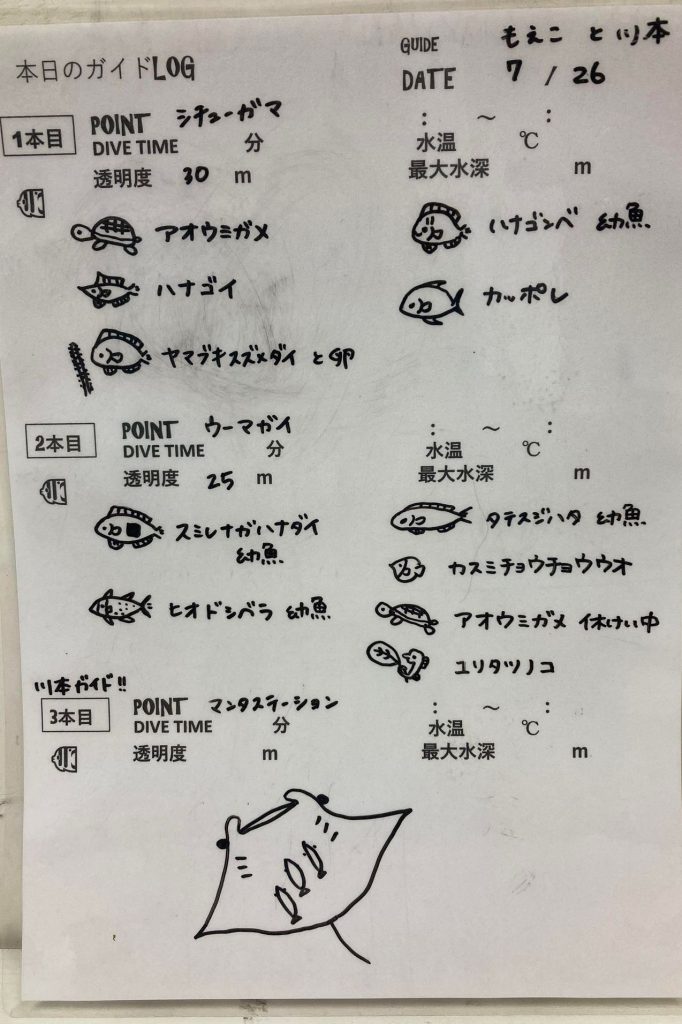 本日のガイドLOG
GUIDE もえこ と 川本
DATE 7 / 26
1本目
POINT シチューガマ
DIVE TIME 分
透明度 30 m
: ～ :
水温 ℃
最大水深 m
アオウミガメ
ハナゴイ
ヤマブキスズメダイ と卵
ハナゴンベ 幼魚
カッポレ
2本目
POINT ウーマガイ
DIVE TIME 分
透明度 25 m
: ～ :
水温 ℃
最大水深 m
スミレナガハナダイ
幼魚
ヒオドシベラ 幼魚
タテスジハタ 幼魚
カスミチョウチョウウオ
アオウミガメ 休けい中
ユリタツノコ
川本ガイド!!
3本目
POINT マンタステーション
DIVE TIME 分
透明度 m
: ～ :
水温 ℃
最大水深 m